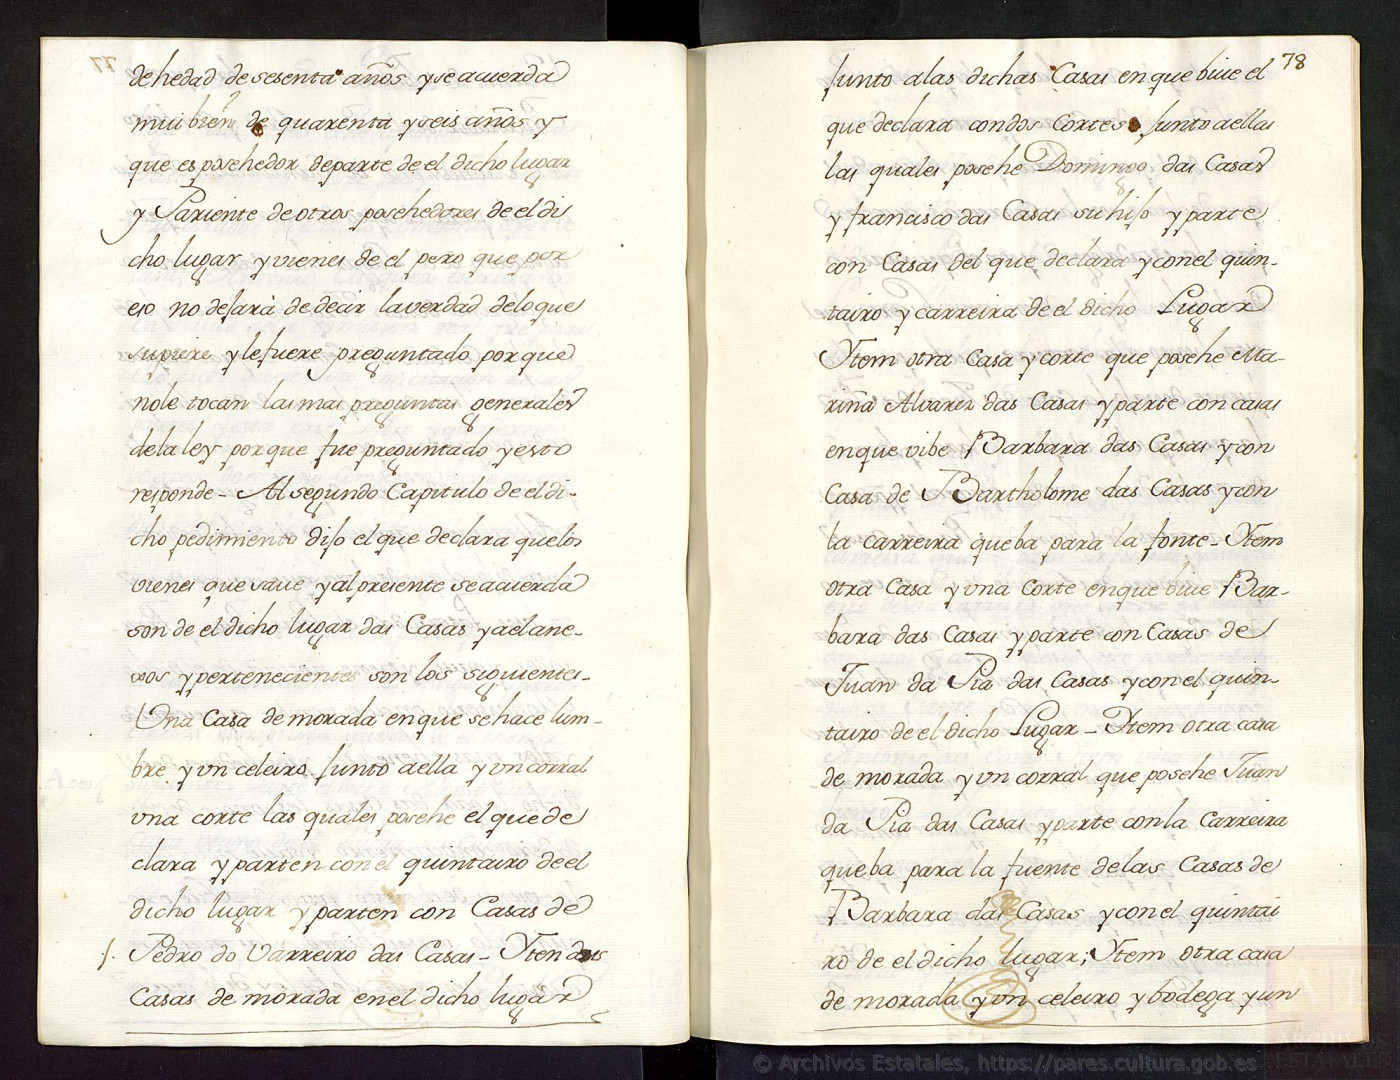 de hedad de sesenta años y se acuerda
mui bien de quarenta y seis años y
que es posehedor de parte de el dicho lugar
y Pariente de otros posehedores de el di
cho lugar y vienes de el pero que por
eso no dejarà de decir la verdad de lo que
supiere y le fuere preguntado por que
no le tocan las mas preguntas generales
de la ley por que fue preguntado y esto
responde - Al segundo Capitulo de el di-
cho pedimiento dijo el que declara que los
vienes que save y al presente se acuerda
son de el dicho lugar das Casas y a el ane-
xos y pertenecientes son los siguientes -
Una Casa de morada en que se hace lum-
bre y vn celeiro junto a ella y vn corral
vna corte las quales posehe el que de
clara y parten con el quintairo de el
dicho lugar y parten con Casas de
Pedro do Varreiro das Casas - Yten dous
Casas de morada en el dicho lugar
78
Junto a las dichas Casas en que biue el
que declara con dos Cortes junto a ellas
las quales posehe Domingo das Casas
y francisco das Casas su hijo y parte
con Casas del que declara y con el quin-
tairo y carreira de el dicho Lugar
Ytem otra Casa y corte que posehe Ma-
riña Alvarez das Casas y parte con casas
en que vibe Barbara das Casas y con
Casa de Bartholome das Casas y con
la carreira que ba para la fonte - Ytem
otra Casa y vna Corte en que biue Bar-
bara das Casas y parte con Casas de
Juan da Pia das Casas y con el quin-
tairo de el dicho Lugar - Ytem otra casa
de morada y vn corral que posehe Juan
da Pia das Casas y parte con la Carreira
que ba para la fuente de las Casas de
Barbara das Casas y con el quintai
ro de el dicho lugar; Ytem otra casa
de morada y vn celeiro y bodega y un
© Archivos Estatales, https://pares.cultura.gob.es
ARCHIVOS
ESTATALES